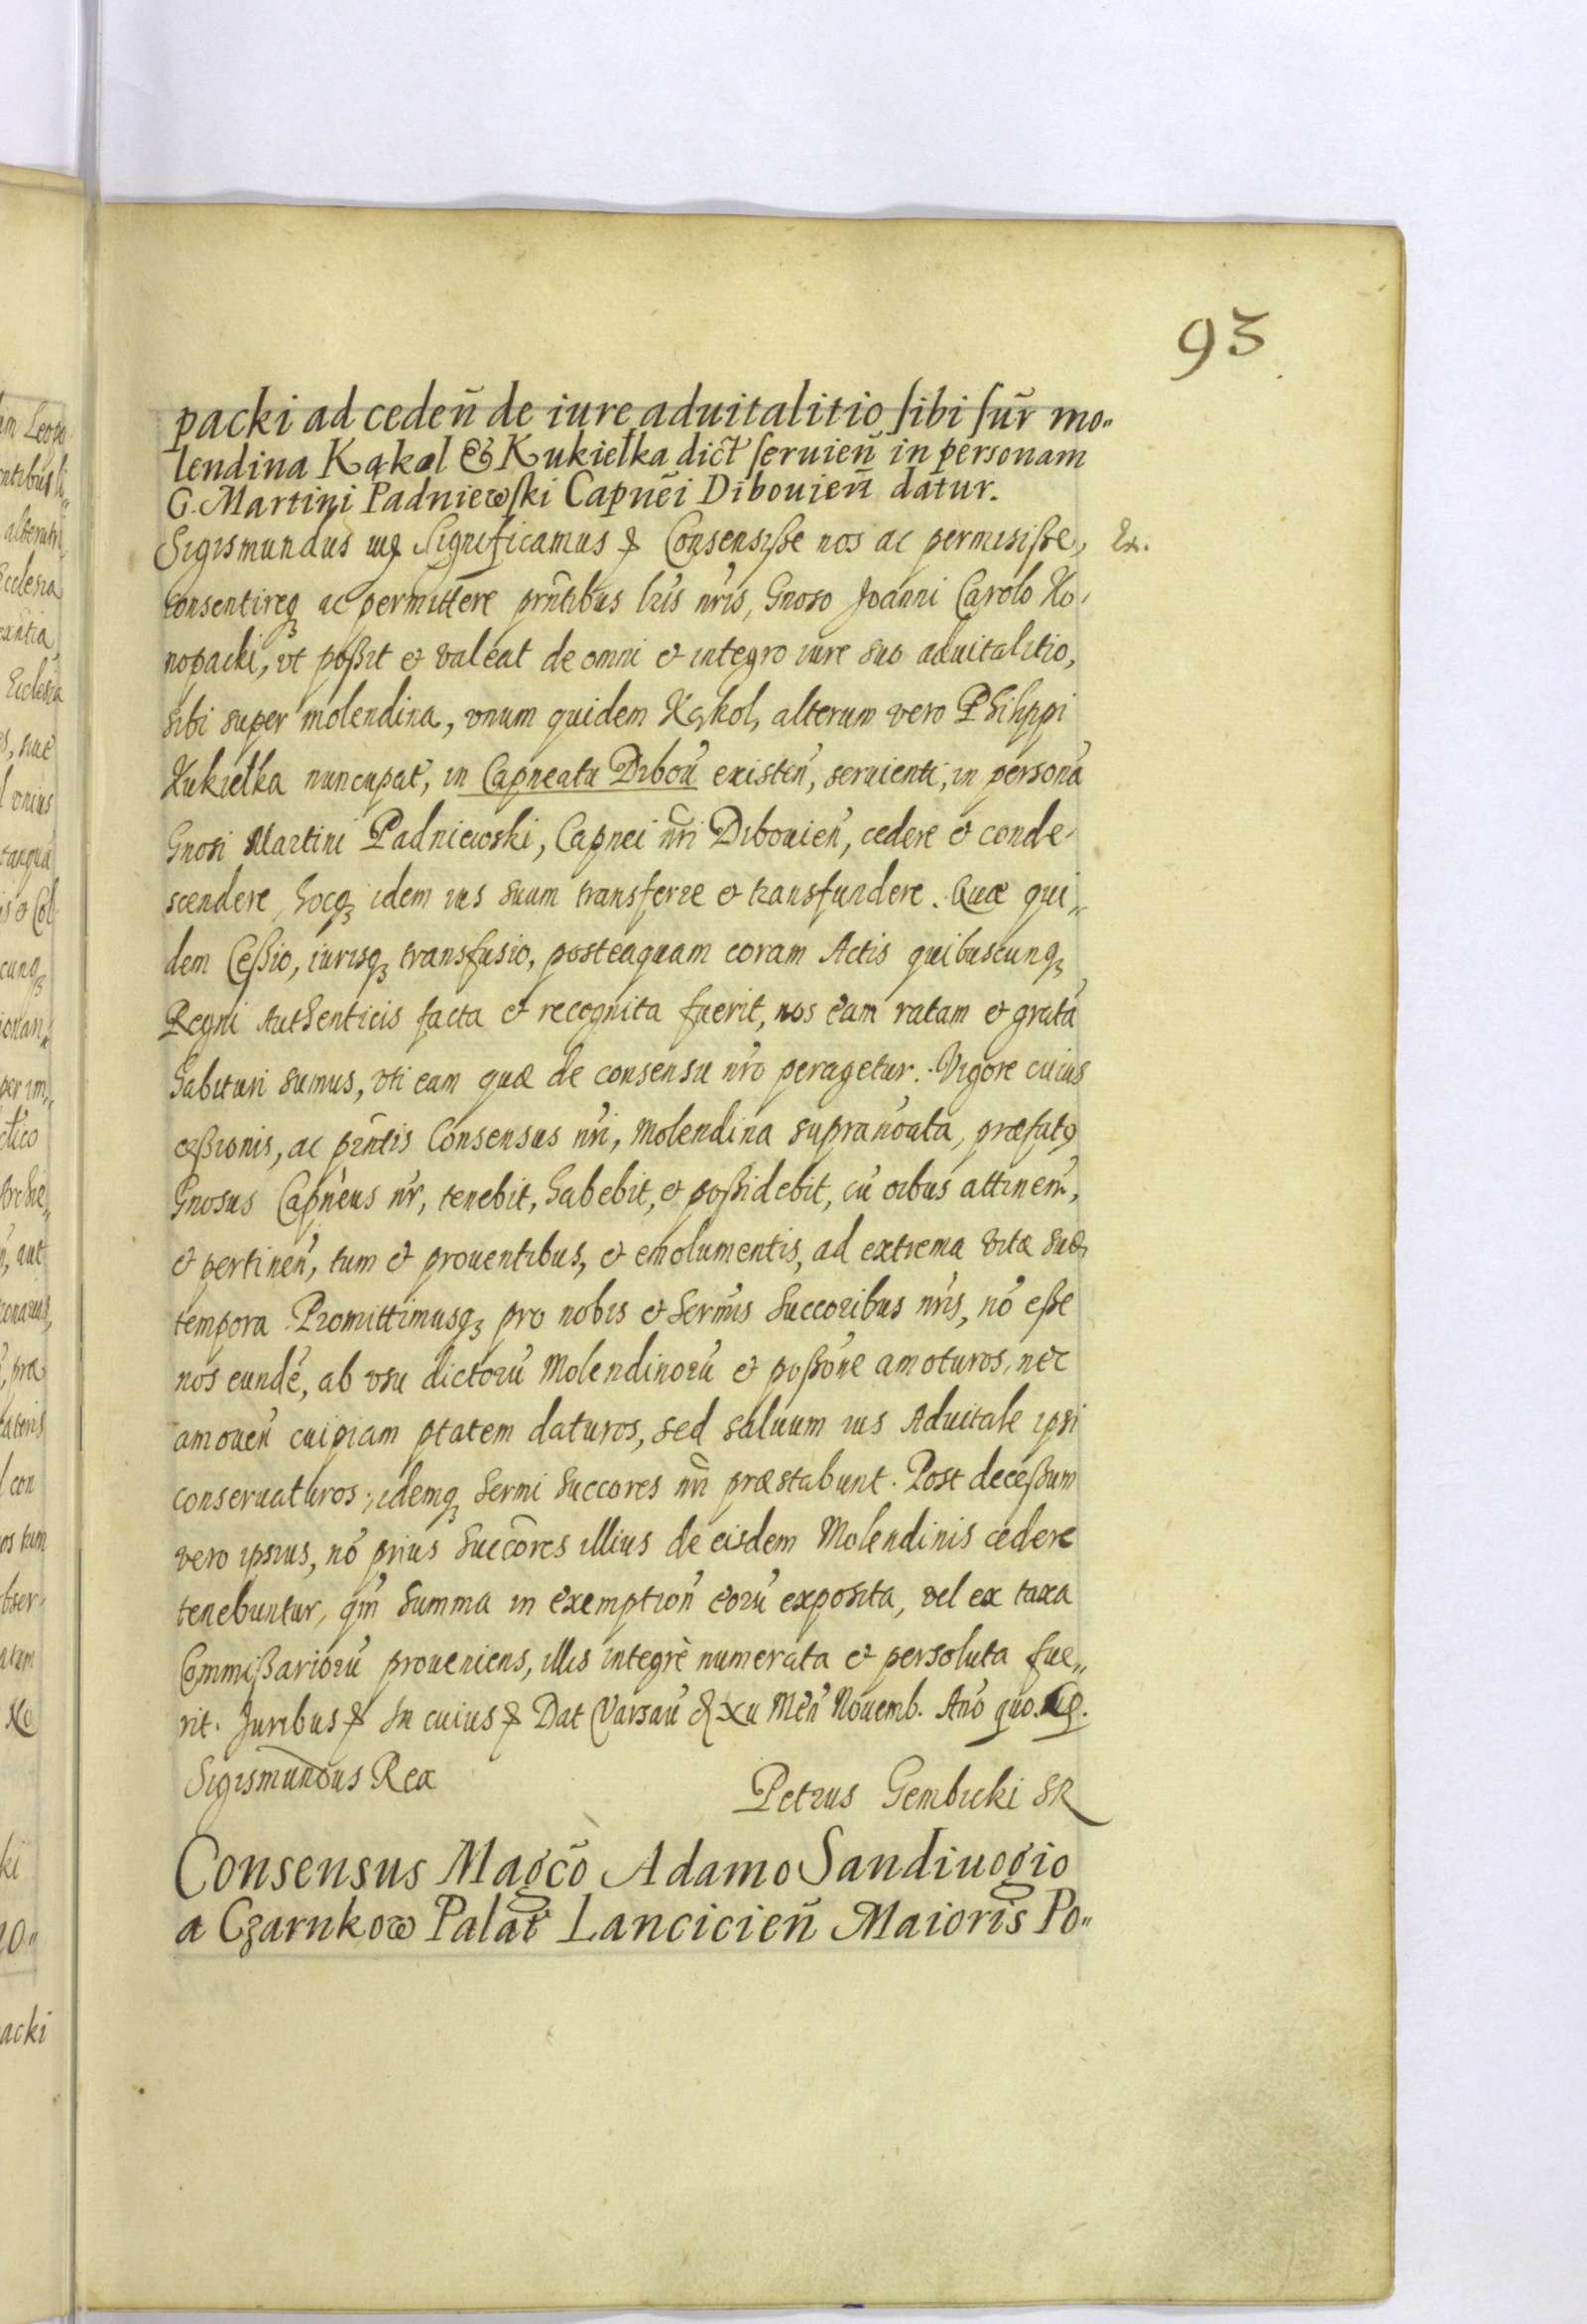 93
packi ad cedeñ de iure aduitalitio sibi sup̃r mo„
lendina Kąkol & Kukiełka dict̃ seruieñ in personam
G. Martini Padniewski Capnẽi Dibouieñ datur.
Sigismundus Significamus Consensisse nos ac permisisse,
consentireqꝫ ac permittere prñtibus lr̃is nr̃is, Gnoso Joanni Carolo Ko,
nopacki, vt possit et valeat de omni et integro iure suo aduitalitio,
sibi super molendina, vnum quidem Kąkol, alterum vero Philippi
Kukiełka nuncupat̃, in Capneatu Dibou̇̃ existeñ, seruienti, in personã
Gnosi Martini Padniewski, Capnei nr̃i Dibouieñ, cedere et conde,
scendere, hocqꝫ idem ius suum transferre et transfundere. Quæ qui„
dem Cessio, iurisqꝫ transfusio, posteaquam coram Actis quibuscunqꝫ
Regni Authenticis facta et recognita fuerit, nos eam ratam et gratã
habituri sumus, vti eam quæ de consensu nr̃o peragetur. Vigore cuius
cessionis, ac prñtis Consensus nr̃i, Molendina supranõata, præfatꝯ
Gnosus Capñeus nr̃, tenebit, habebit, et possidebit, cũ oĩbus attineñ,
et pertineñ, tum et prouentibus, et emolumentis, ad extrema vitæ suæ
tempora. Promittimusqꝫ pro nobis et Serm̃is Succoribus nr̃is, nõ esse
nos eundẽ, ab vsu dictorũ Molendinorũ et possõne amoturos, nec
amoueñ cuipiam ptatem daturos, sed saluum ius Aduitale ipsi
conseruaturos; idemqꝫ Sermi Succores nr̃i præstabunt. Post decessum
vero ipsius, nõ prius Succõres illius de eisdem Molendinis cedere
tenebuntur, qm̃ summa in exemptioñ eorũ exposita, vel ex taxa
Commissariorũ proueniens, illis integrè numerata et persoluta fue„
rit. Juribus In cuius Dat Varsau̇̃ xv Meñ Nouemb. Año quo.
Sigismundus Rex
Petrus Gembicki SR
Consensus Magc̃o Adamo Sandiuogio
a Czarnkow Palat̃ Lancicieñ Maioris Po„